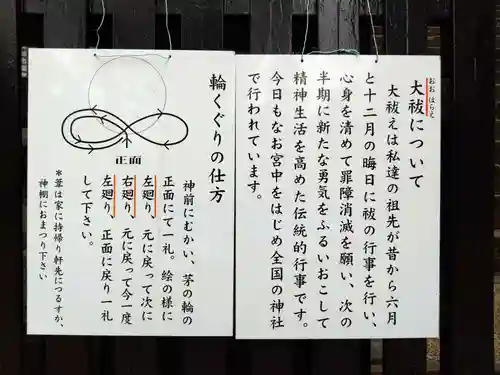 おお はらえ
大祓について
大祓えは私達の祖先が昔から六月
と十二月の晦日に祓の行事を行い、
心身を清めて罪障消滅を願い、次の
半期に新たな勇気をふるいおこして
精神生活を高めた伝統的行事です。
今日もなお宮中をはじめ全国の神社
で行われています。
輪くぐりの仕方
正面
神前にむかい、茅の輪の
正面にて一礼。絵の様に
左廻り、元に戻って次に
右廻り、元に戻って今一度
左廻り、正面に戻り一礼
して下さい。
*葦は家に持帰り軒先につるすか、
神棚におまつり下さい